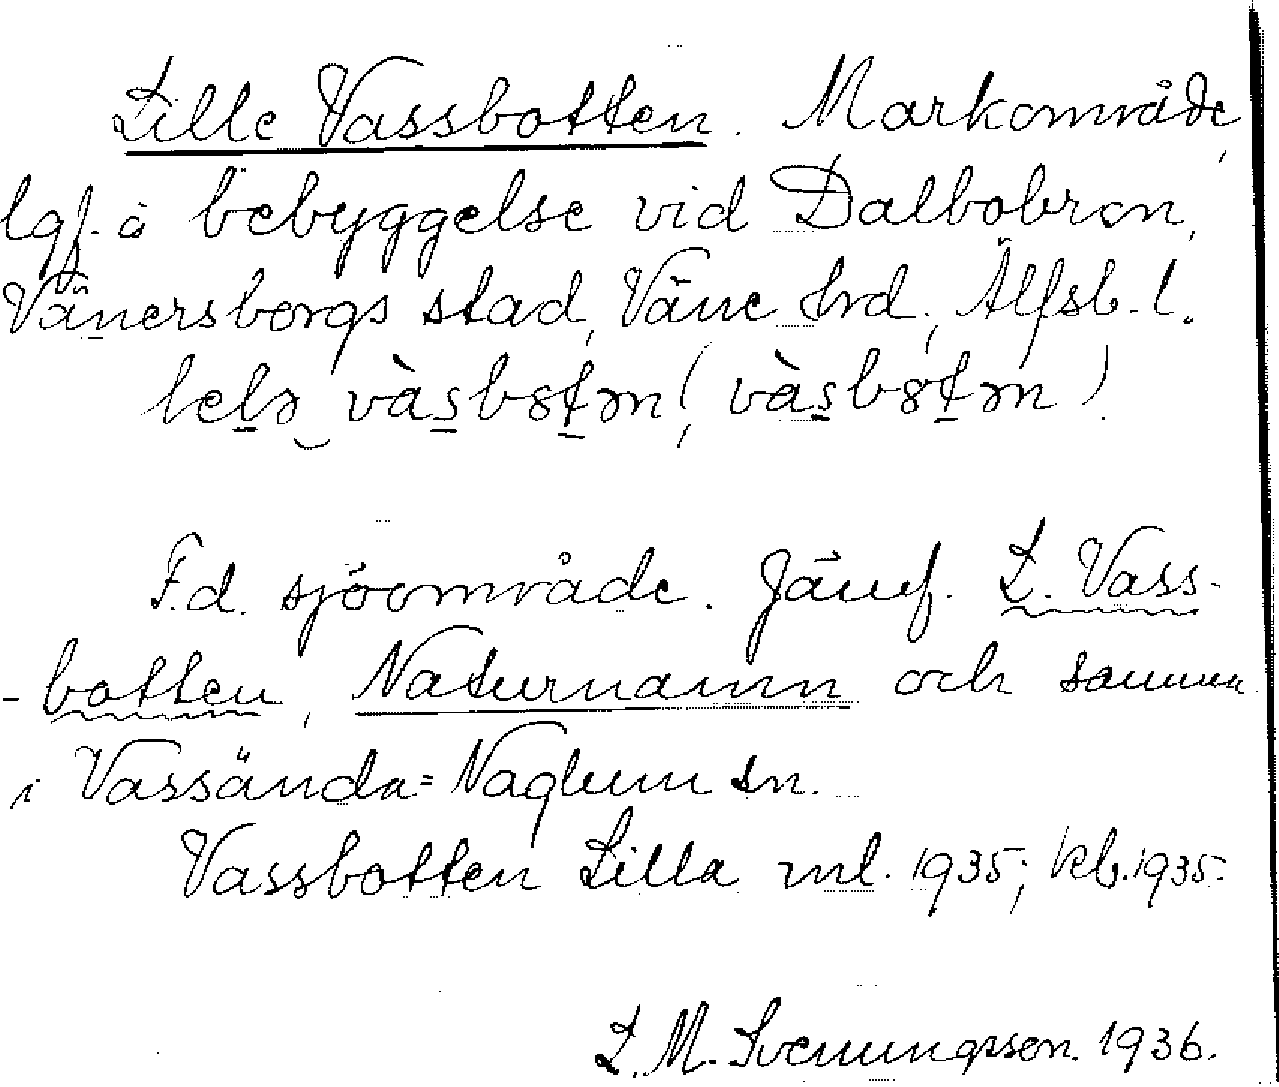 Lille Vassbotten. Markområde,
lgf. å bebyggelse vid Dalbobron,
Vänersborgs stad, Väne hrd., Älfsb. l.
vàsbotən (vàsbotən)
F.d. sjöområde. Jämf. L. Vass-
-botten, Naturnamn och samma
i Vassända=Naglum sn.
Vassbotten Lilla ml. 1935; kb. 1935.
L. M. Svenungsson. 1936.